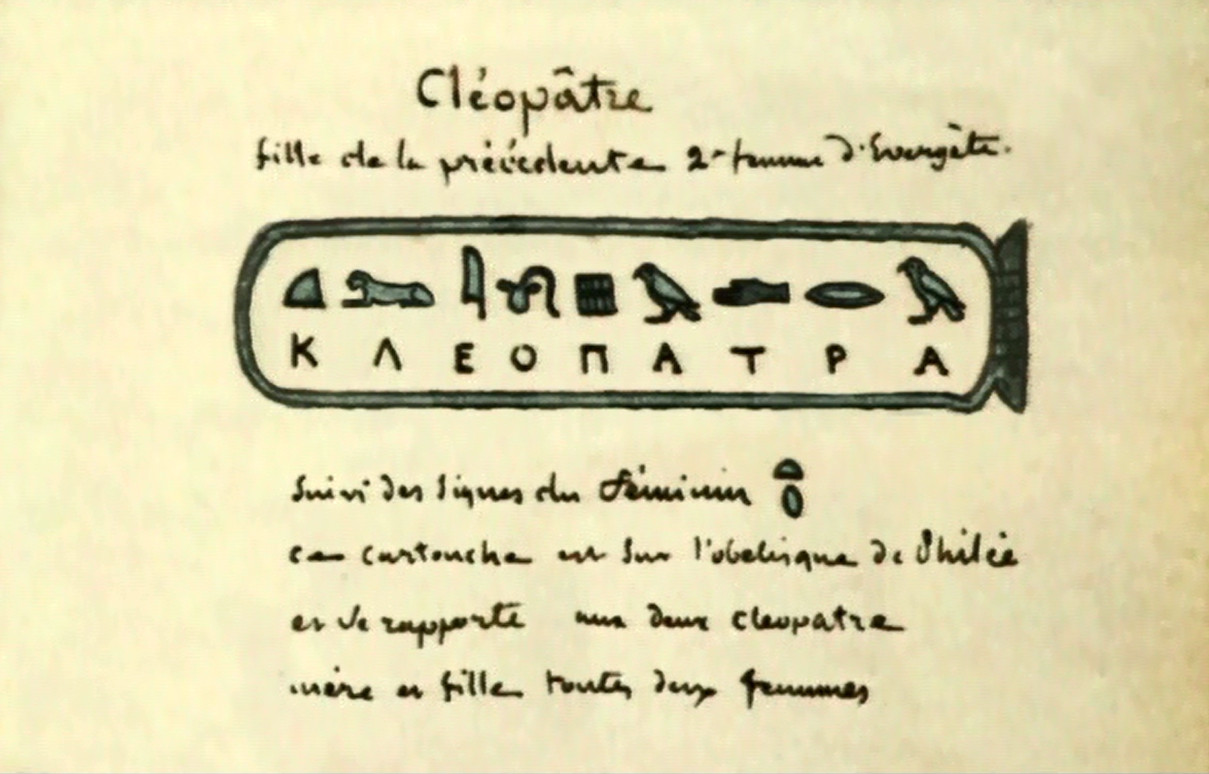 Cléopâtre
fille de la précédente 2e femme d'Evergète.
Κ Λ Ε Ο Π Α Τ Ρ Α
Suivi des signes du féminin
ce cartouche est sur l'obelisque de Philée
et se rapporte aux deux cleopatre
mère et fille toutes deux femmes